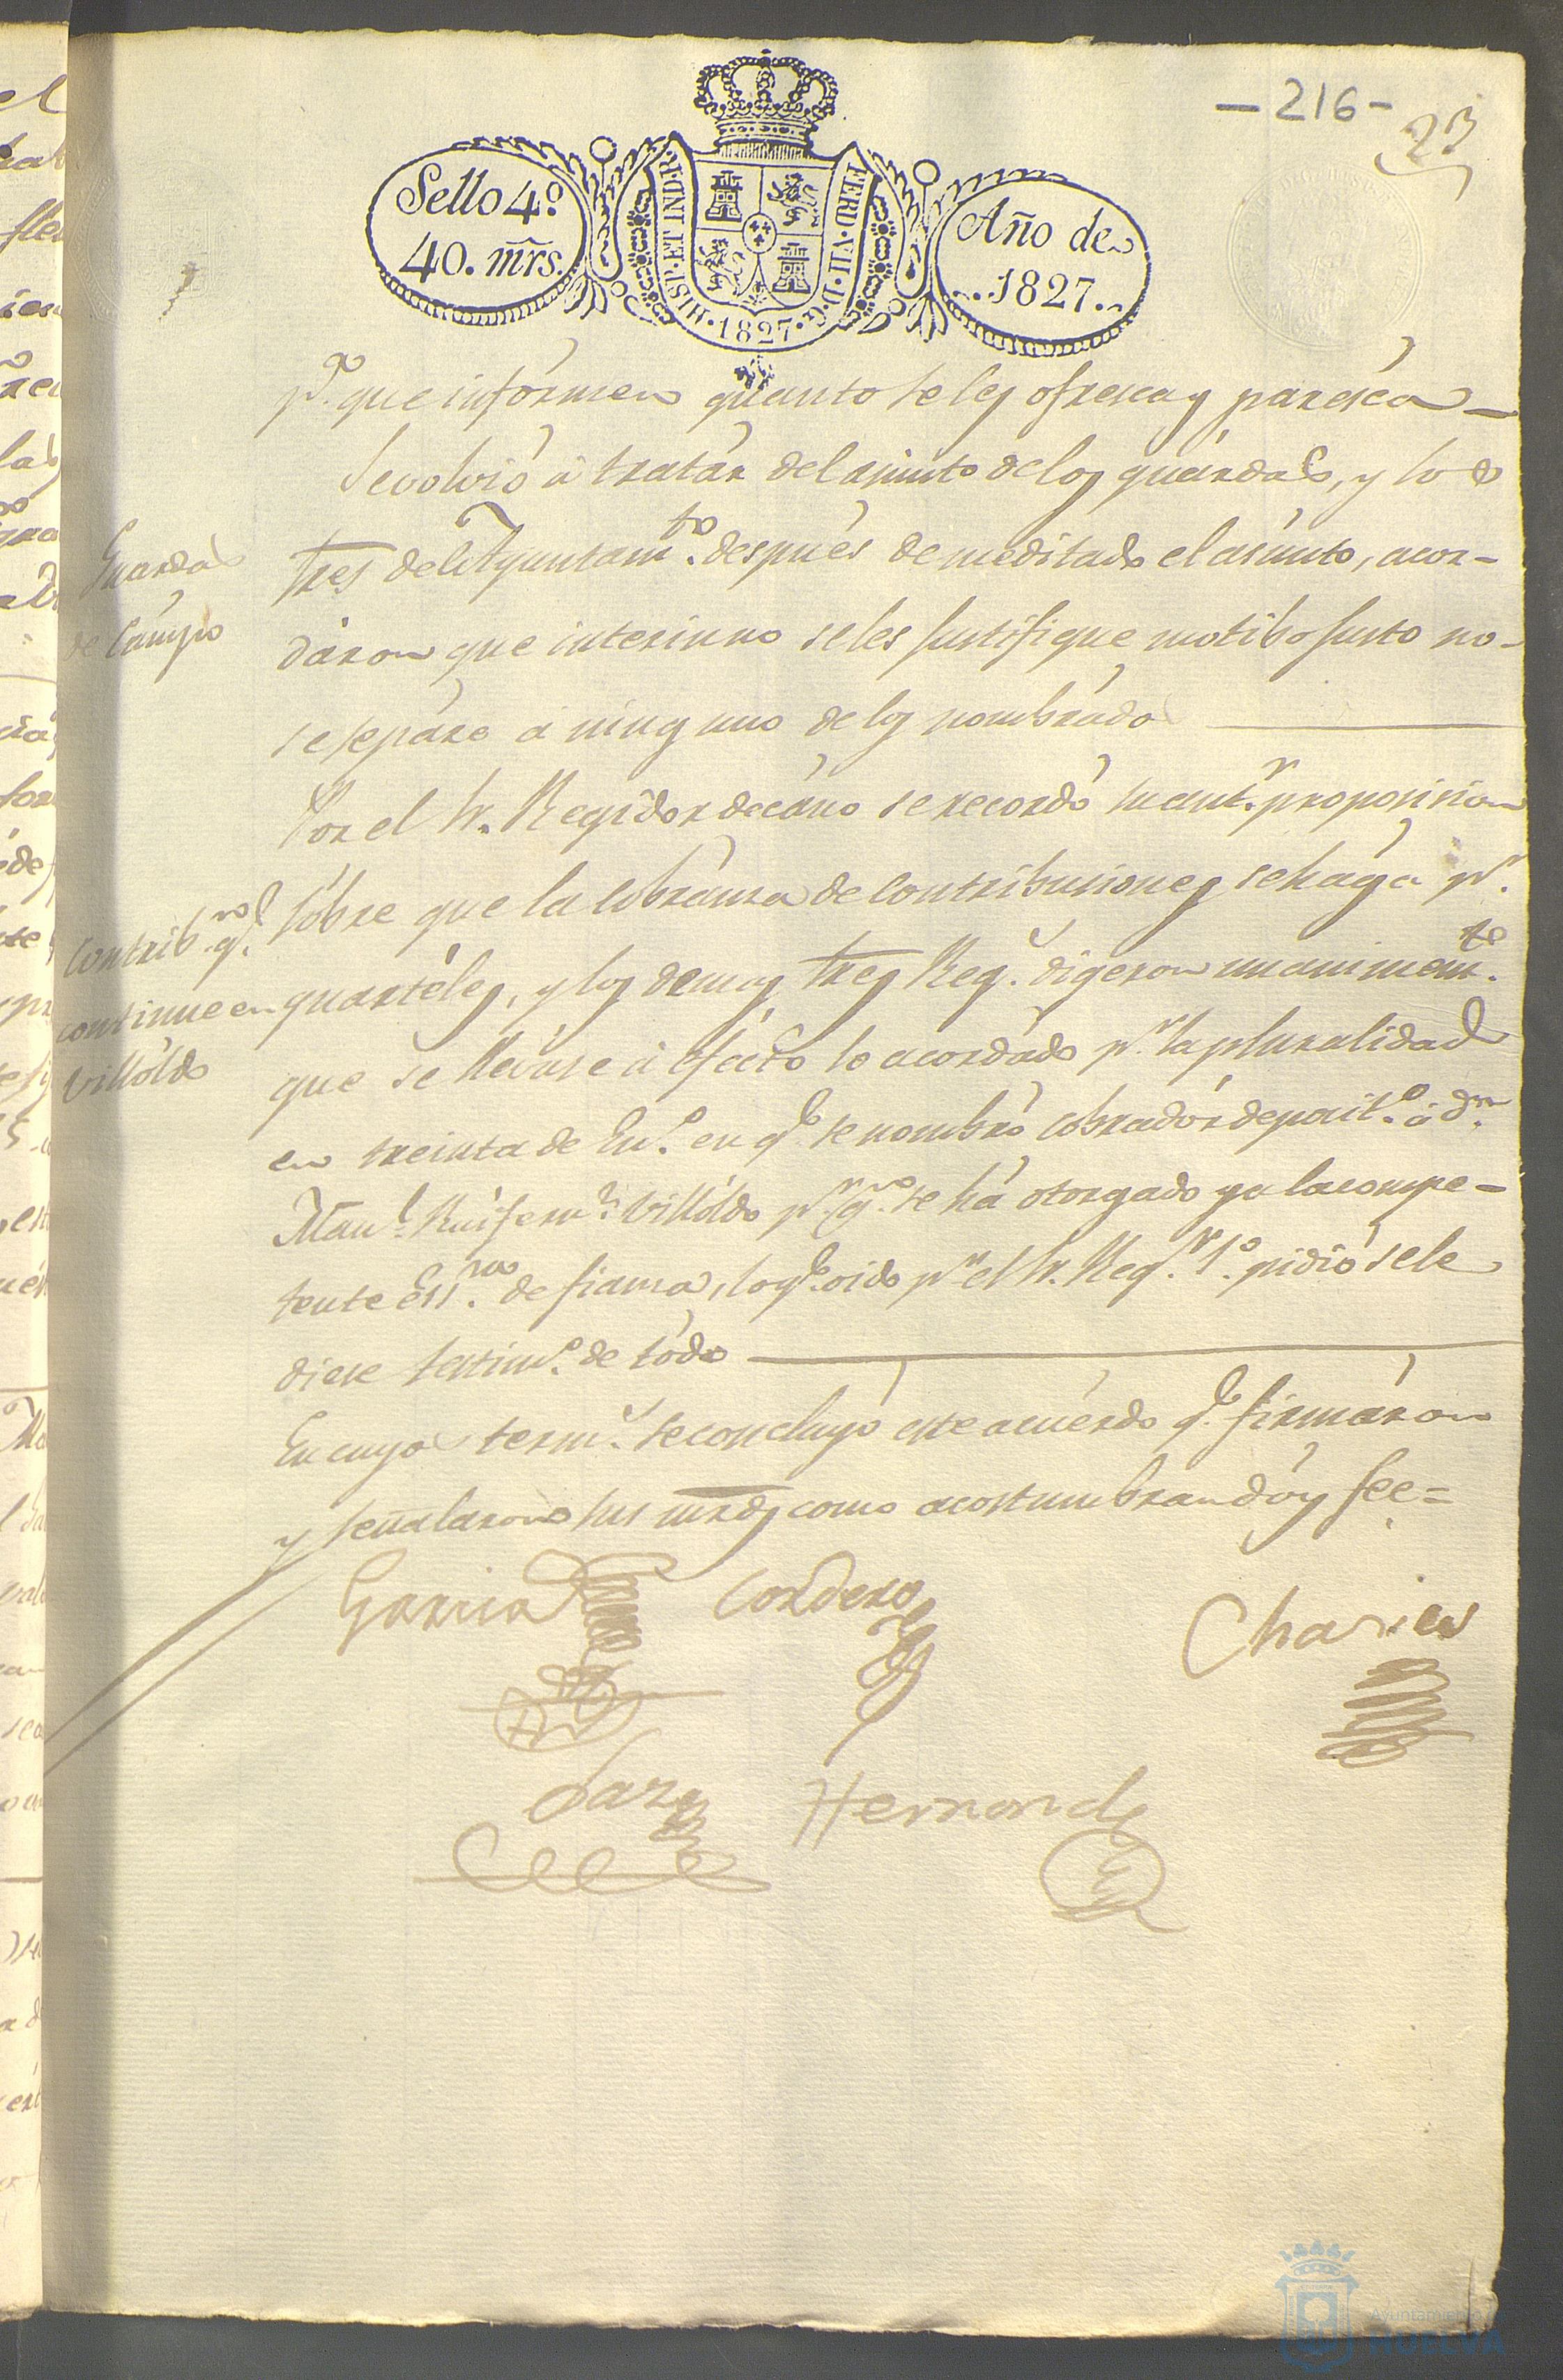 — 216 —
23
Sello 4.º
40. mrs.
HISP. ET IND. R.
FERD. VII. D. G.
1827
Año de
1827
p.ª que informen quanto se les ofresca y paresca —
Se volvió á tratár del asunto de los guárdas, y los
Guardas
de Campo
tres del Ayuntam.to despues de meditado el asunto, acor-
dáron que interin no se les justifique motibo justo no
se sepáre á ninguno de los nombrádos
Por el Sr. Regidor decáno se recordó su ant.r proposicion
Contrib. q.e
continue en
Villoldo
sóbre que la cobránza de contribuciones se hága p.r
quartéles, y los demas tres Reg.s digeron unanimem.te
que se lleváse á efecto lo acordádo p.r la pluralidad
en treinta de En.o en q.e se nombró cobradór deposit.o á d.n
Man.l Ruifern.z Villóldo p.r q.n se há otorgado ya la compe-
tente Ess.ra de fianza, lo q.e oido p.r el Sr. Reg.r 1.o pidió se le
diese testim.o de tódo
En cuyos term.s se concluyó este acuérdo q.e firmáron
y señalaron sus mrds como acostumbran dóy fee =
Garcia
Cordero
Charies
Hernands
Ayuntamiento
HUELVA